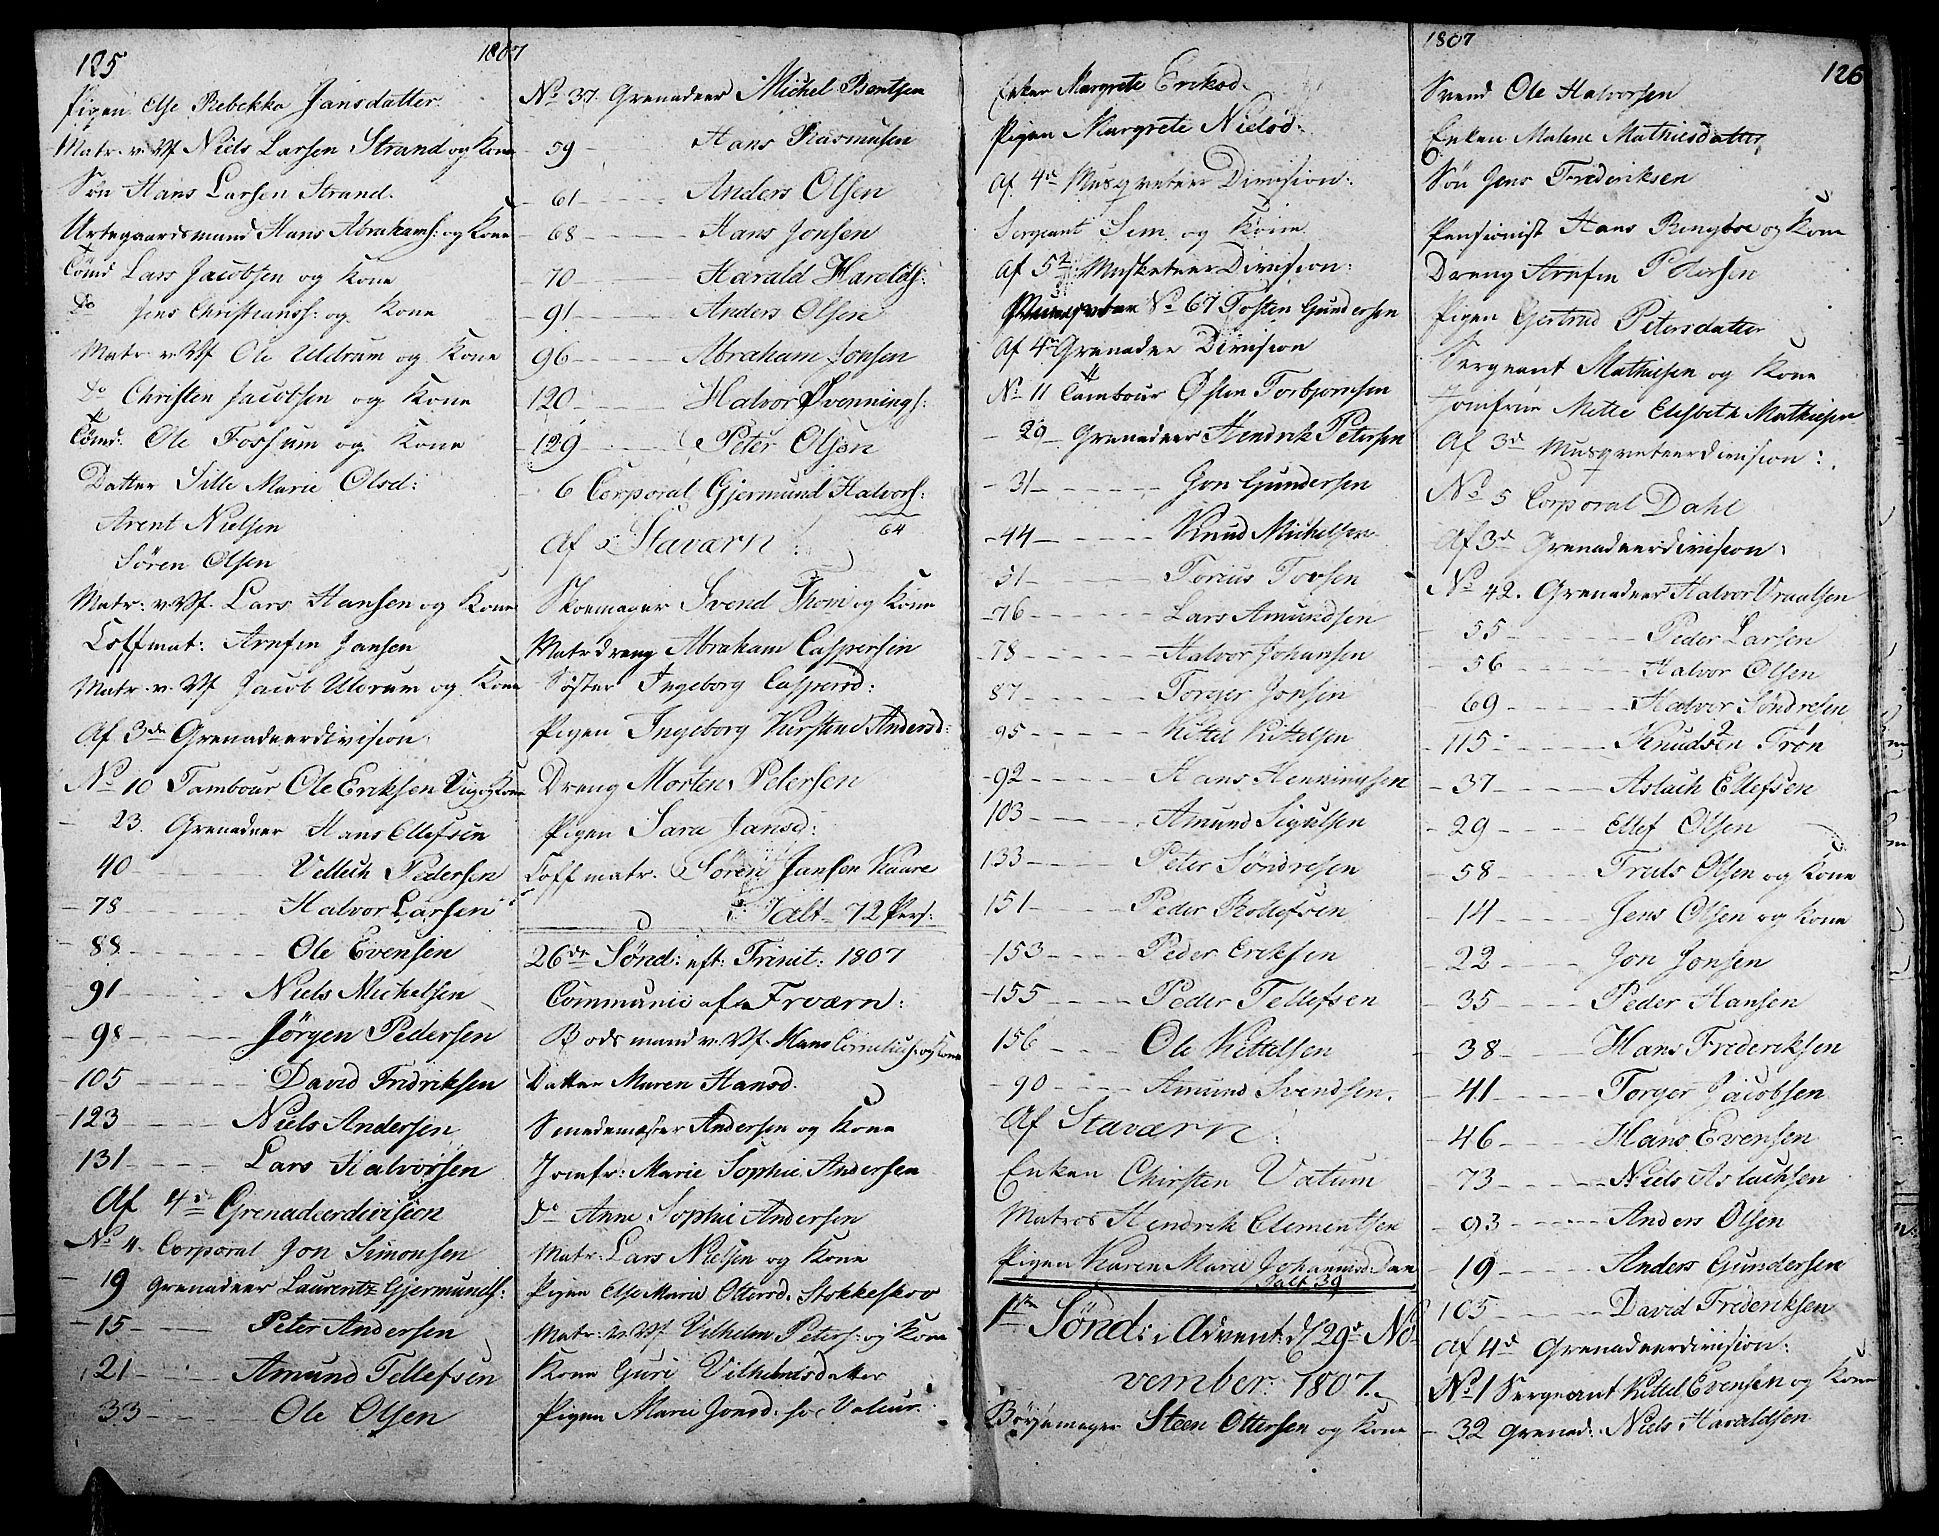 125
1807
Pigen Else Rebekka Jansdatter.
Matr. v. Vf. Niels Larsen Strand og Kone
Søn Hans Larsen Strand.
Urtegaardsmand Hans Abrahams: og Kone
Tømd Lars Jacobsen og Kone
Do Jens Christianss: og Kone
Matr. v. Vf Ole Uldrum og Kone
Do Christen Jacobsen og Kone
Tømd: Ole Fossum og Kone
Datter Sille Marie Olsd:
Arent Nielsen
Søren Olsen
Matr: v. Vf. Lars Hansen og Kone
Coffmat: Arnfin Jansen
Matr. v. Vf Jacob Uldrum og Kone
Af 3de Grenadeerdivision.
No 10 Tambour Ole Eriksen Vig og Kone
- 23. Grenadeer Hans Ellefsen
40 Velleik Pedersen
- 78 Halvor Larsen
- 88 Ole Evensen
91 Niels Michelsen
- 98 Jørgen Pedersen
- 105 David Fridriksen
- 123 Niels Andersen
131 Lars Halvorsen
Af 4de Grenadeerdivision
No 4. Corporal Jon Simonsen
- 19 Grenadeer Laurentz Gjermunds:
- 15 Peter Andersen
21 Amund Tellefsen
33 Ole Olsen
No 37. Grenadeer Michel Bentsen
59 Hans Rasmusen
- 61 Anders Olsen
- 68 Hans Jonsen
- 70 Harald Haralds:
- 91 Anders Olsen
96 Abraham Jonsen
120 Halvor Svennings:
- 129 Peter Olsen
- 6 Corporal Gjermund Halvors:
64
Af Staværn:
Skoemager Svend Thom og Kone
Matrdreng Abraham Caspersen
Søster Ingeborg Caspersd:
Pigen Ingeborg Kirstine Andersd:
Dreng Morten Petersen
Pigen Sara Jansd:
Coffmatr. Søren Jansen Kaare
Ialt 72 Pers:
26de Sønd: eft: Trinit: 1807
Communic af Frværn:
Bodsmand v. Vf. Hans Cornelius: og Kone
Datter Maren Hansd.
Smedemester Andersen og Kone
Jomfr: Marie Sophie Andersen
Do Anne Sophie Andersen
Matr: Lars Nielsen og Kone
Pigen Else Marie Ottersd. Stokkeskov
Matr: v. Vf. Vilhelm Peters: og Kone
Kone Guri Vilhelmsdatter
Pigen Marie Jonsd. hos Valeur.
Enken Margrete Eriksd.
Pigen Margrete Nielsd.
Af 4de Musqveteer Division:
Sergeant Sem og Kone
Af 5te Musketeer Division:
Musqveteer No 67 Tosten Gundersen
Af 4de Grenadeer Division
No 11 Tambour Østen Torbjørnsen
- 29 Grenadeer Hendrik Petersen
- 31 Gon Gundersen
- 44 Knud Michelsen
51 Torius Tovsen
- 76 Lars Amundsen
- 78 Halvor Johansen
87 Torger Jonsen
95 Kittel Kittelsen
- 92 Hans Henningsen
103 Amund Sigulsen
133 Peter Søndresen
151 Peder Rollefsen
- 153 Peder Eriksen
- 155 Peder Tellefsen
156 Ole Kittelsen
- 90 Amund Svendsen.
Af Staværn:
Enken Chirsten Vatum
Matros Hendrik Clementsen
Pigen Karen Marie Johannesd: Dan
Ialt 39
1te Sønd: i Advent: d 29de No
vember: 1807.
Børsemager Steen Ottersen og Kone
1807
126
Svend Ole Halvorsen
Enken Malene Mathiesdatter,
Søn Jens Frederiksen
Pensionist Hans Ringboe og Kone
Dreng Arnfin Petersen
Pigen Gertrud Petersdatter
Sergeant Mathiesen og Kone
Jomfrue Mette Elisbeth Mathiesen
Af 3de Musqveteerdivision:
No 5 Corporal Dahl
Af 3de Grenadeerdivision:
No 42. Grenadeer Halvor Vraalsen
- 55 Peder Larsen
- 56 Halvor Olsen
- 69 Halvor Søndresen
- 115 Knudsen Trøn
- 37 Aslach Ellefsen
- 29 Ellef Olsen
- 58 Truls Olsen og Kone
- 14 Jens Olsen og Kone
- 22 Jon Jonsen
- 35 Peder Hansen
- 38 Hans Frederiksen
- 41 Torger Jacobsen
- 46 Hans Evensen
- 73 Niels Aslachsen
- 93 Anders Olsen
- 19 Anders Gundersen
105 David Frederiksen
Af 4de Grenadeerdivision:
No 1 Sergeant Kittel Evensen og Kone
- 32 Grenad: Niels Haraldsen